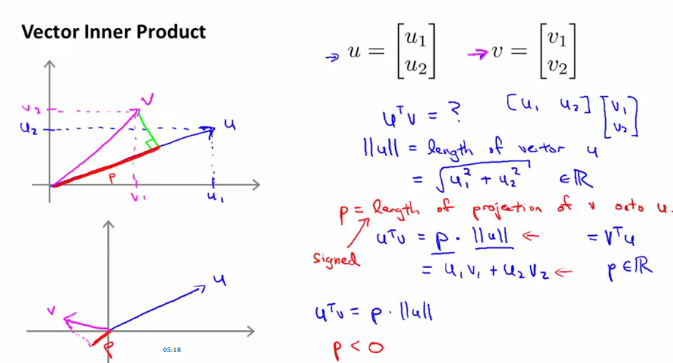 Vector Inner Product
→ u = [u₁ u₂]
→ v = [v₁ v₂]
v₂
u₂
v
u
p
v₁
u₁
uᵀv = ? [u₁ u₂] [v₁ v₂]
||u|| = length of vector u
= √(u₁² + u₂²) ∈ ℝ
p = length of projection of v onto u.
signed
uᵀv = p · ||u|| ← = vᵀu
= u₁v₁ + u₂v₂ ← p ∈ ℝ
u
v
p
05:18
uᵀv = p · ||u||
p < 0